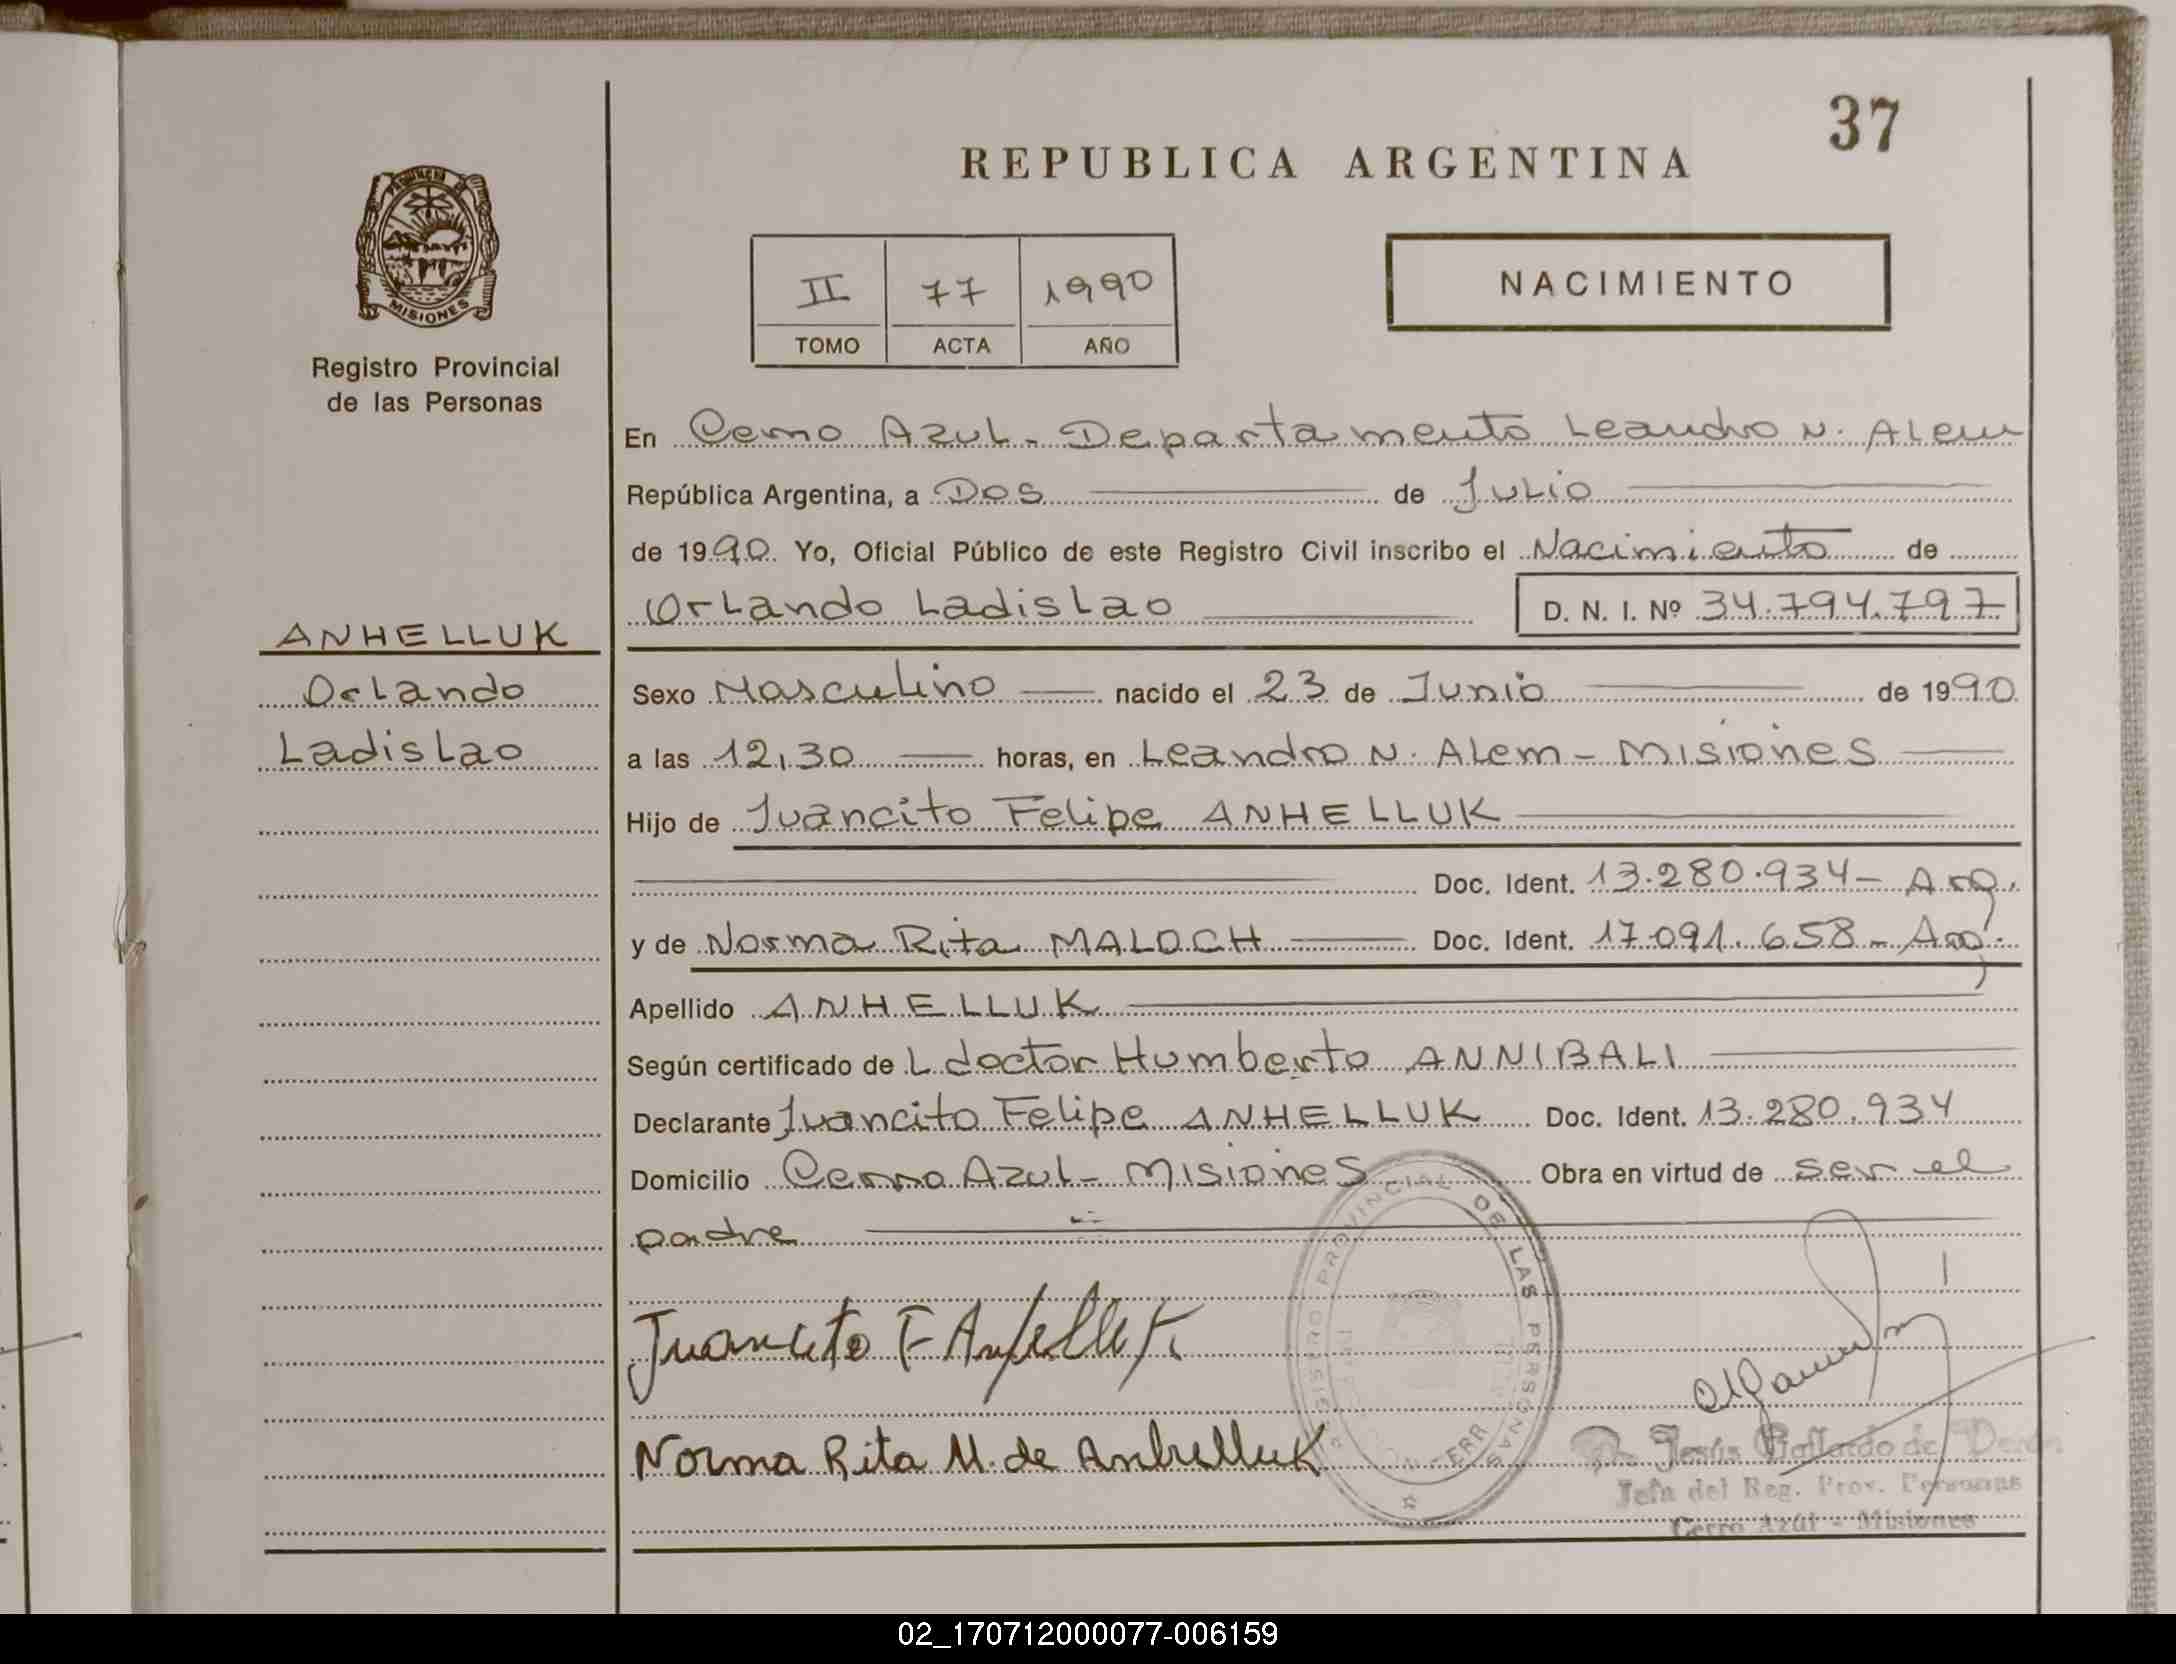 37
REPUBLICA ARGENTINA
PROVINCIA DE
MISIONES
Registro Provincial
de las Personas
II 77 1990
TOMO ACTA AÑO
NACIMIENTO
En Cerro Azul - Departamento Leandro N. Alem
República Argentina, a Dos de Julio
de 1990. Yo, Oficial Público de este Registro Civil inscribo el Nacimiento de
Orlando Ladislao D. N. I. Nº 34.794.797
ANHELLUK
Orlando
Ladislao
Sexo Masculino nacido el 23 de Junio de 1990
a las 12,30 horas, en Leandro N. Alem - Misiones
Hijo de Juancito Felipe ANHELLUK
Doc. Ident. 13.280.934 - Arg.
y de Norma Rita MALOCH Doc. Ident. 17.091.658 - Arg.
Apellido ANHELLUK
Según certificado de L doctor Humberto ANNIBALI
Declarante Juancito Felipe ANHELLUK Doc. Ident. 13.280.934
Domicilio Cerro Azul - Misiones Obra en virtud de ser el
padre
REGISTRO PROVINCIAL DE LAS PERSONAS
Juancito F Anhelluk
Norma Rita M. de Anhelluk
Jesús Gallardo de
Jefa del Reg. Prov. Personas
Cerro Azul - Misiones
02_170712000077-006159